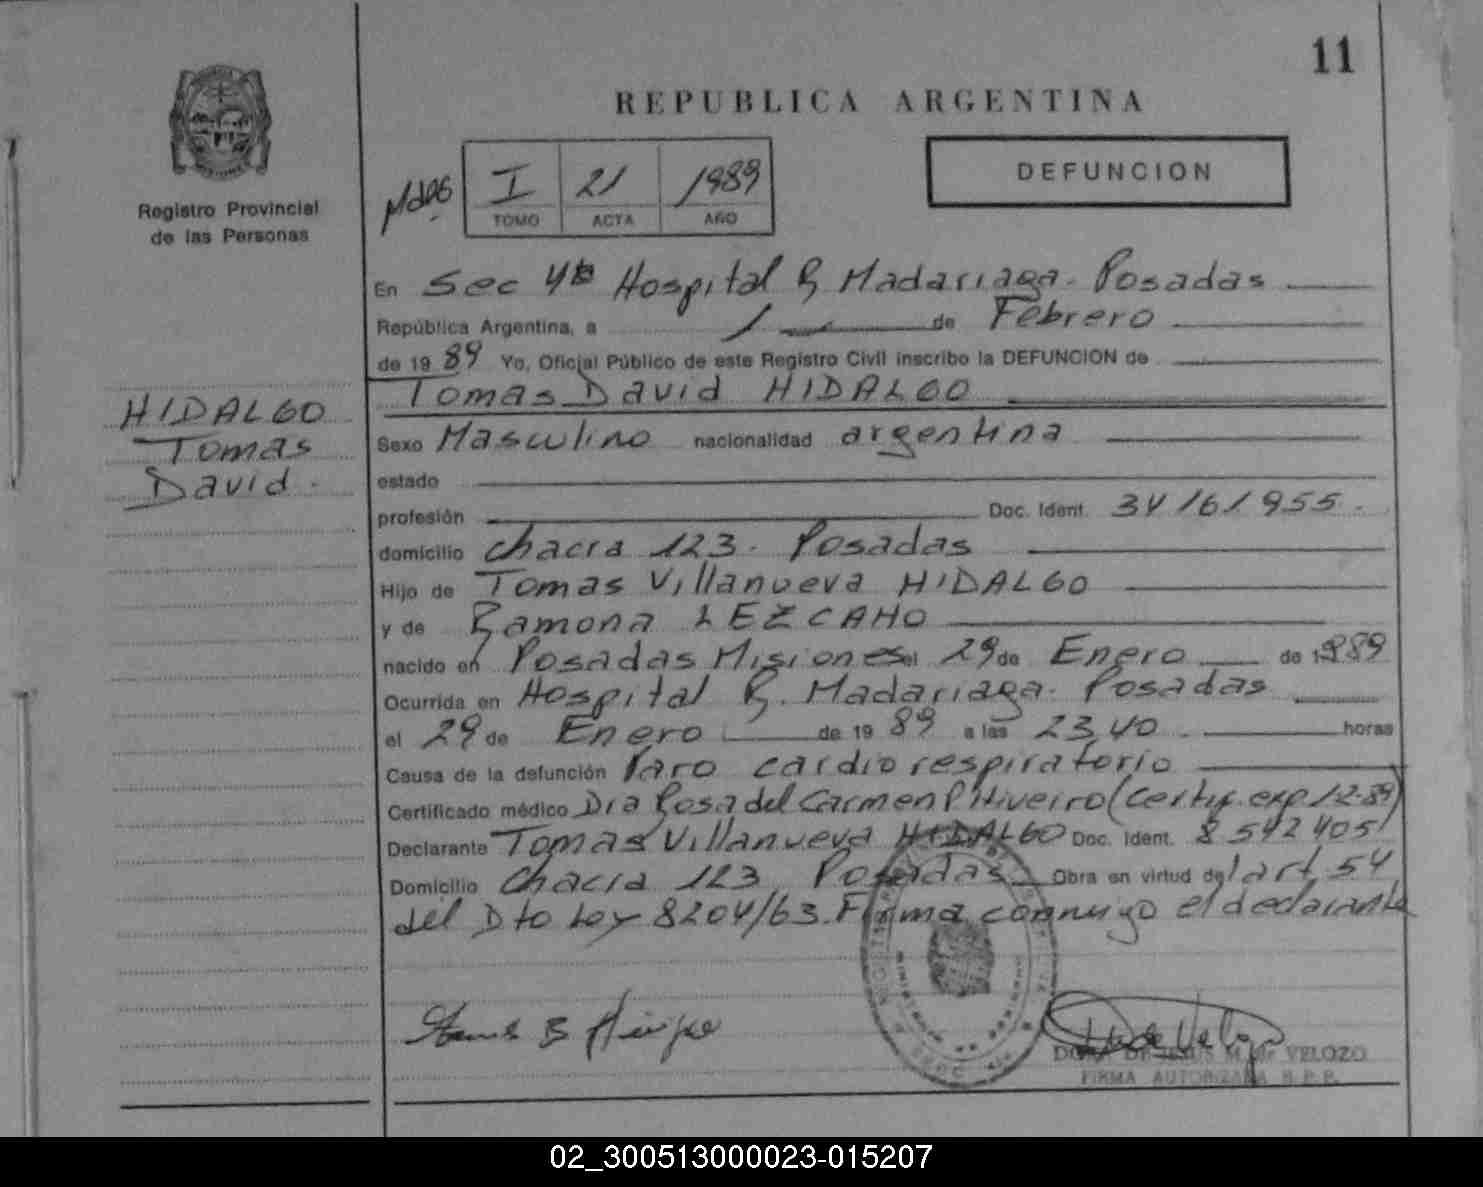 11
REPUBLICA ARGENTINA
DEFUNCION
Registro Provincial
de las Personas
I 21 1989
TOMO ACTA AÑO
En Sec 4ta Hospital R Madariaga - Posadas
República Argentina, a 1 de Febrero
de 19 89 Yo, Oficial Público de este Registro Civil inscribo la DEFUNCION de
Tomas David HIDALGO
HIDALGO
Tomas
David.
Sexo Masculino nacionalidad argentina
estado
profesión Doc. Ident. 34161955.
domicilio Chacra 123. Posadas
Hijo de Tomas Villanueva HIDALGO
y de Ramona LEZCANO
nacido en Posadas Misiones el 29 de Enero de 1989
Ocurrida en Hospital R. Madariaga. Posadas
el 29 de Enero de 19 89 a las 23,40 . horas
Causa de la defunción Paro cardiorespiratorio
Certificado médico Dra Rosa del Carmen (Certif. exp. 1-2-89)
Declarante Tomas Villanueva HIDALGO Doc. Ident. 8542405
Domicilio Chacra 123, Posadas Obra en virtud del art 54
del Dto Ley 8204/63. Firma conmigo el declarante
DORA DE JESUS M. de VELOZO
FIRMA AUTORIZADA R.P.P.
02_300513000023-015207